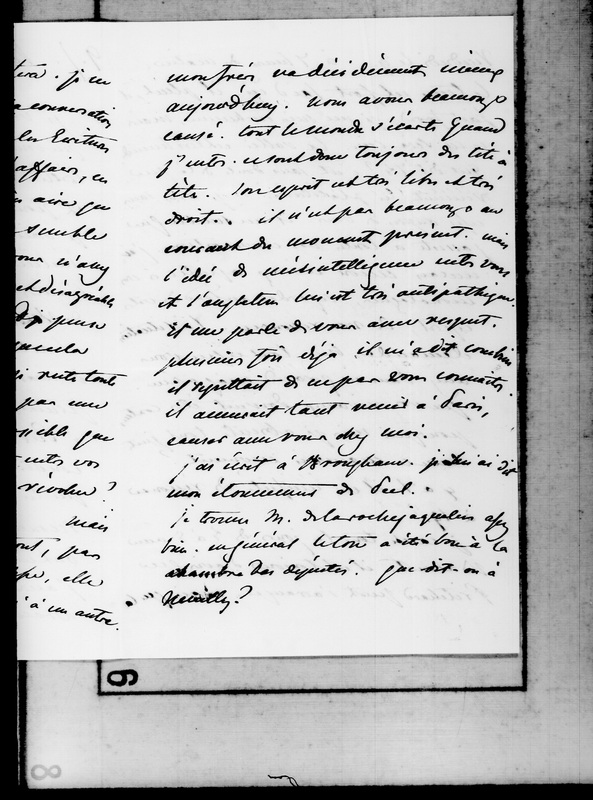 je ne
conversation
les Ecritures
affaires, en
aire que
semble
vous n'ay
et désagréables
pense
que cela
si reste toute
par une
possible que
entre vos
révolver?
mais
tout, pas
elle
à un autre.
mon frère va décidément mieux
aujourd'huy. nous avons beaucoup
causé. tout le monde s'écarte quand
j'entre. ce sont donc toujours des tête à
tête. son esprit est très libre et très
droit. il n'est pas beaucoup au
courant du moment présent. mais
l'idée de mésintelligence entre vous
et l'angleterre lui est très antipathique.
Il me parle de vous avec respect.
plusieurs fois déjà il m'a dit combien
il regrettait de ne pas vous connaitre.
il aimerait tant venir à Paris,
causer avec vous chez moi.
j'ai écrit à Brougham. je lui ai dit
mon étonnement de Peel.
je trouve M. de Larochejaquelein assez
bien. en général le ton a été bon à la
chambre des députés. que dit-on à
Neuilly?
6
8